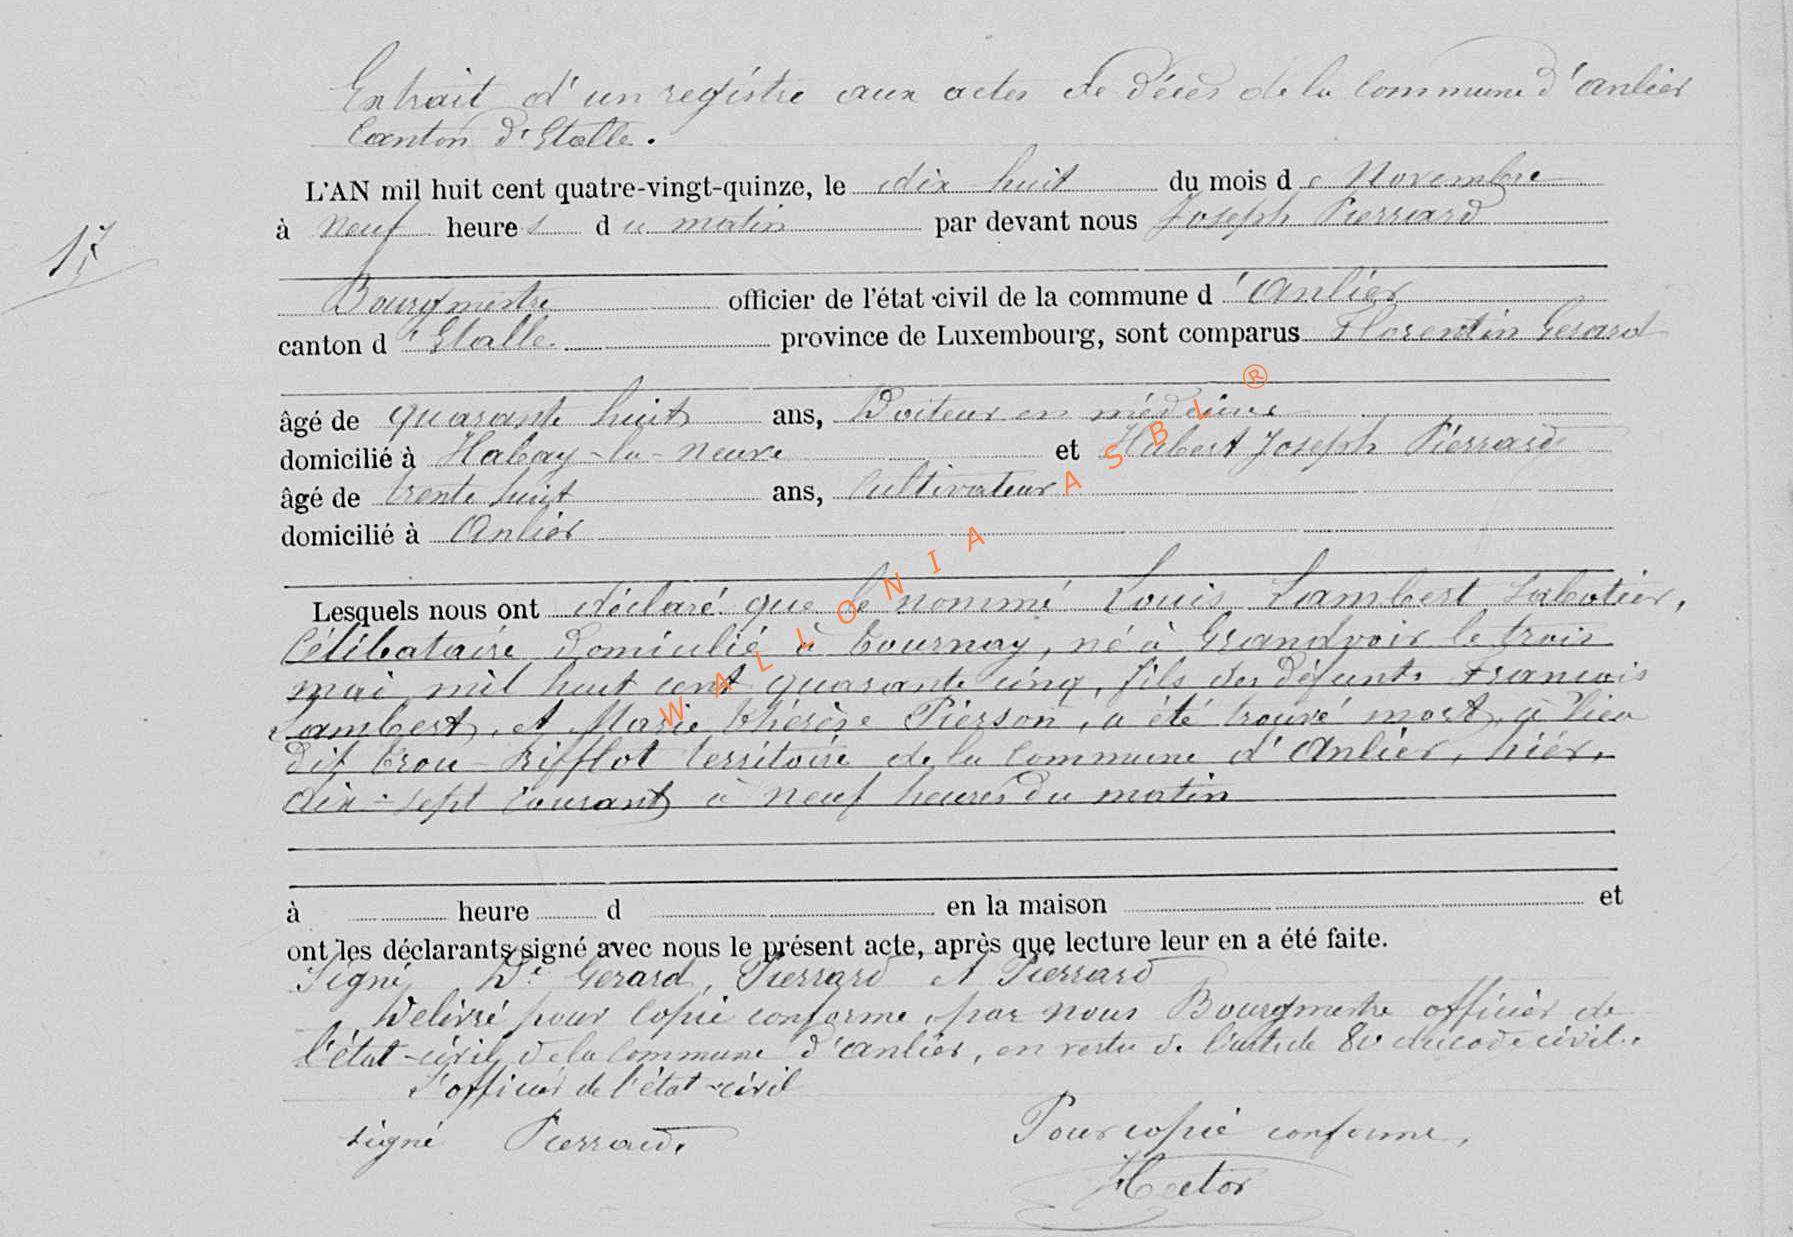 Extrait d'un registre aux actes de décès de la commune d'Anlier
Canton d'Etalle.
L'AN mil huit cent quatre-vingt-quinze, le dix huit du mois de Novembre
17
à neuf heures du matin par devant nous Joseph Pierrard
Bourgmestre officier de l'état civil de la commune d'Anlier
canton d'Etalle province de Luxembourg, sont comparus Florentin Gerard
âgé de quarante huit ans, Docteur en médecine
domicilié à Habay-la-Neuve et Hubert Joseph Pierrard
âgé de trente huit ans, Cultivateur
domicilié à Anlier
Lesquels nous ont déclaré que le nommé Louis Lambert Sabotier,
Célibataire domicilié à Tournay, né à Grandvoir le trois
mai mil huit cent quarante cinq, fils des défunts François
Lambert, et Marie Thérèse Pierson, a été trouvé mort, à lieu
dit trou-Rifflot territoire de la commune d'Anlier, hier,
dix-sept courant à neuf heures du matin
à heure d en la maison et
ont les déclarants signé avec nous le présent acte, après que lecture leur en a été faite.
Signé Dr Gerard, Pierrard et Pierrard
Delivré pour copie conforme, par nous Bourgmestre officier de
l'état-civil de la commune d'Anlier, en vertu de l'article 80 du code civil.
L'officier de l'état-civil
signé Pierrard.
Pour copie conforme,
Hector
WALLONIA ASBL ®